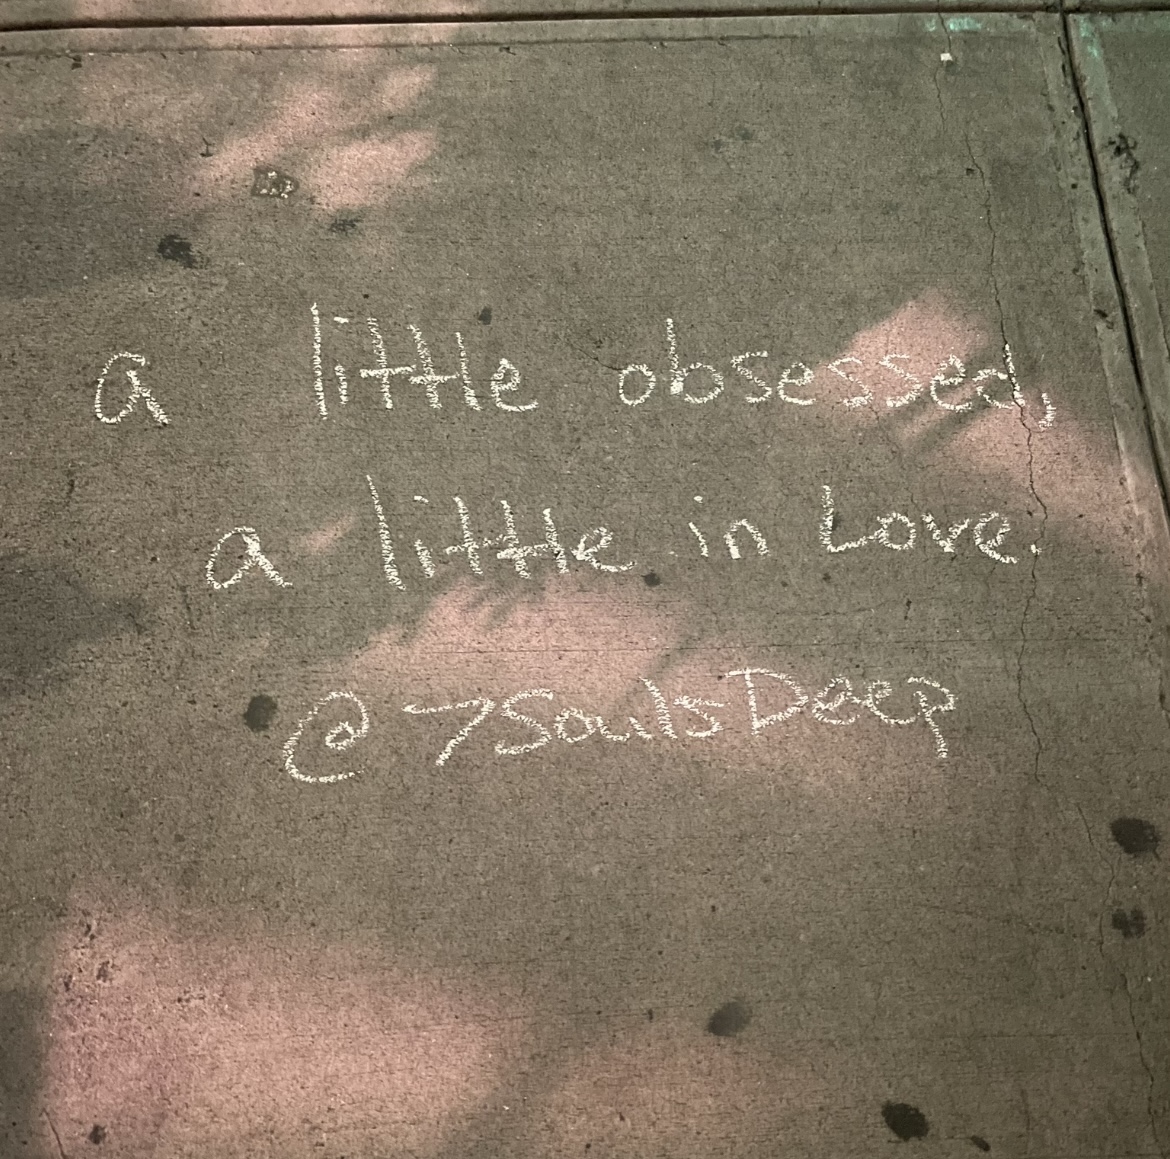 a little obsessed,
a little in Love.
@7SoulsDeep